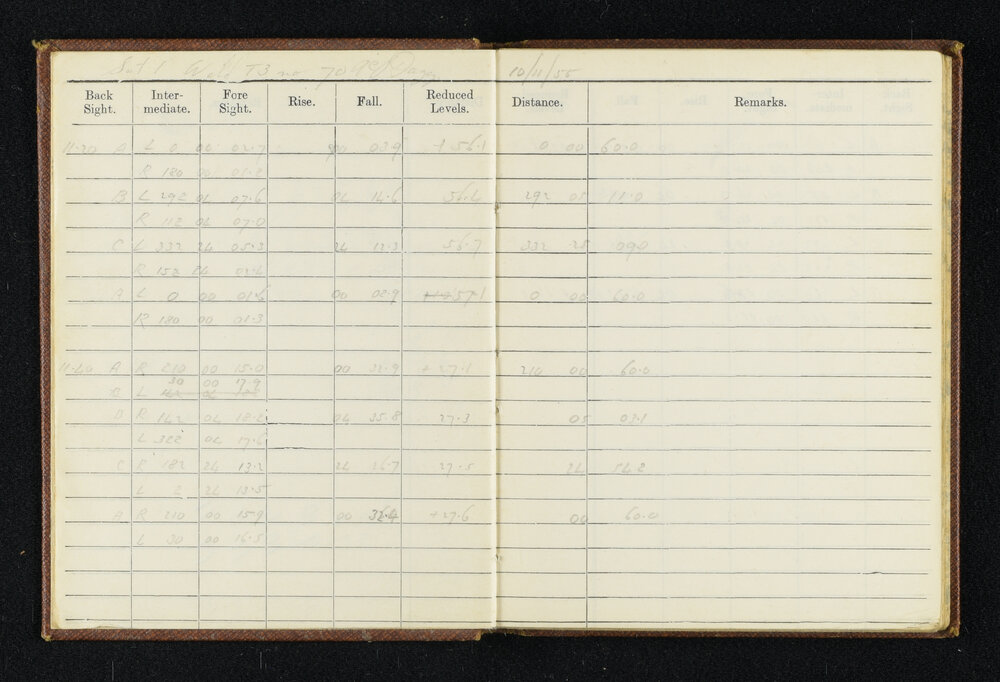 10/11/55
Back Sight. Inter- mediate. Fore Sight. Rise. Fall. Reduced Levels. Distance. Remarks.
11.20 A L 0 00 02.7 00 03.9 + 56.1 0 00 60.0
R 180 00 01.2
B L 292 04 07.6 04 14.6 56.4 292 05 11.0
R 112 04 07.0
C L 332 24 05.3 24 12.3 56.7 332 25 09.0
R 152 24
A L 0 00 01.6 00 02.9 57.1 0 00 60.0
R 180 00 01.3
11.40 A R 210 00 15.0 00 32.9 + 27.1 210 00 60.0
30 00 17.9
L
B R 142 04 18.2 04 35.8 27.3 05 03.1
L 322 04 17.6
C R 182 24 13.2 24 26.7 27.5 24 54.2
L 2 24 13.5
A R 210 00 15.9 00 32.4 + 27.6 00 60.0
L 30 00 16.5